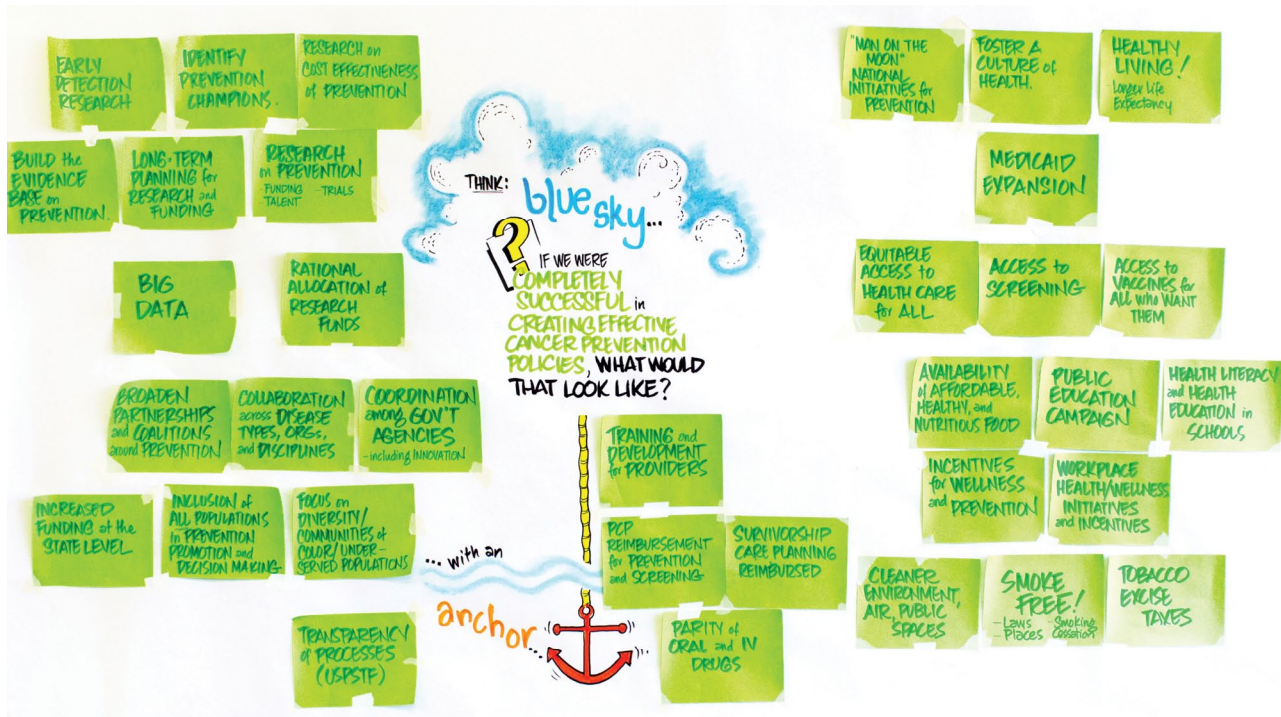 EARLY
DETECTION
RESEARCH
IDENTIFY
PREVENTION
CHAMPIONS.
RESEARCH on
COST EFFECTIVENESS
of PREVENTION
BUILD the
EVIDENCE
BASE on
PREVENTION.
LONG-TERM
PLANNING for
RESEARCH and
FUNDING
RESEARCH
on PREVENTION
-FUNDING -TRIALS
TALENT
BIG
DATA
RATIONAL
ALLOCATION of
RESEARCH
FUNDS
BROADEN
PARTNERSHIPS
and COALITIONS
around PREVENTION
COLLABORATION
across DISEASE
TYPES, ORGs,
and DISCIPLINES
COORDINATION
among GOV'T
AGENCIES
-including INNOVATION
INCREASED
FUNDING at the
STATE LEVEL
INCLUSION of
ALL POPULATIONS
in PREVENTION
PROMOTION and
DECISION MAKING
FOCUS on
DIVERSITY/
COMMUNITIES of
COLOR/UNDER-
SERVED POPULATIONS
TRANSPARENCY
of PROCESSES
(USPSTF)
THINK:
blue sky...
?
IF WE WERE
COMPLETELY
SUCCESSFUL in
CREATING EFFECTIVE
CANCER PREVENTION
POLICIES, WHAT WOULD
THAT LOOK LIKE?
... with an
anchor...
TRAINING and
DEVELOPMENT
for PROVIDERS
PCP
REIMBURSEMENT
for PREVENTION
and SCREENING
SURVIVORSHIP
CARE PLANNING
REIMBURSED
PARITY of
ORAL and IV
DRUGS
"MAN ON THE
MOON"
NATIONAL
INITIATIVES for
PREVENTION
FOSTER A
CULTURE of
HEALTH.
HEALTHY
LIVING!
-Longer Life
Expectancy
MEDICAID
EXPANSION
EQUITABLE
ACCESS to
HEALTH CARE
for ALL
ACCESS to
SCREENING
ACCESS to
VACCINES for
ALL who WANT
THEM
AVAILABILITY
of AFFORDABLE,
HEALTHY, and
NUTRITIOUS FOOD
PUBLIC
EDUCATION
CAMPAIGN
HEALTH LITERACY
and HEALTH
EDUCATION in
SCHOOLS
INCENTIVES
for WELLNESS
and PREVENTION
WORKPLACE
HEALTH/WELLNESS
INITIATIVES
and INCENTIVES
CLEANER
ENVIRONMENT,
AIR, PUBLIC
SPACES
SMOKE
FREE!
-Laws -Smoking
-Places Cessation
TOBACCO
EXCISE
TAXES